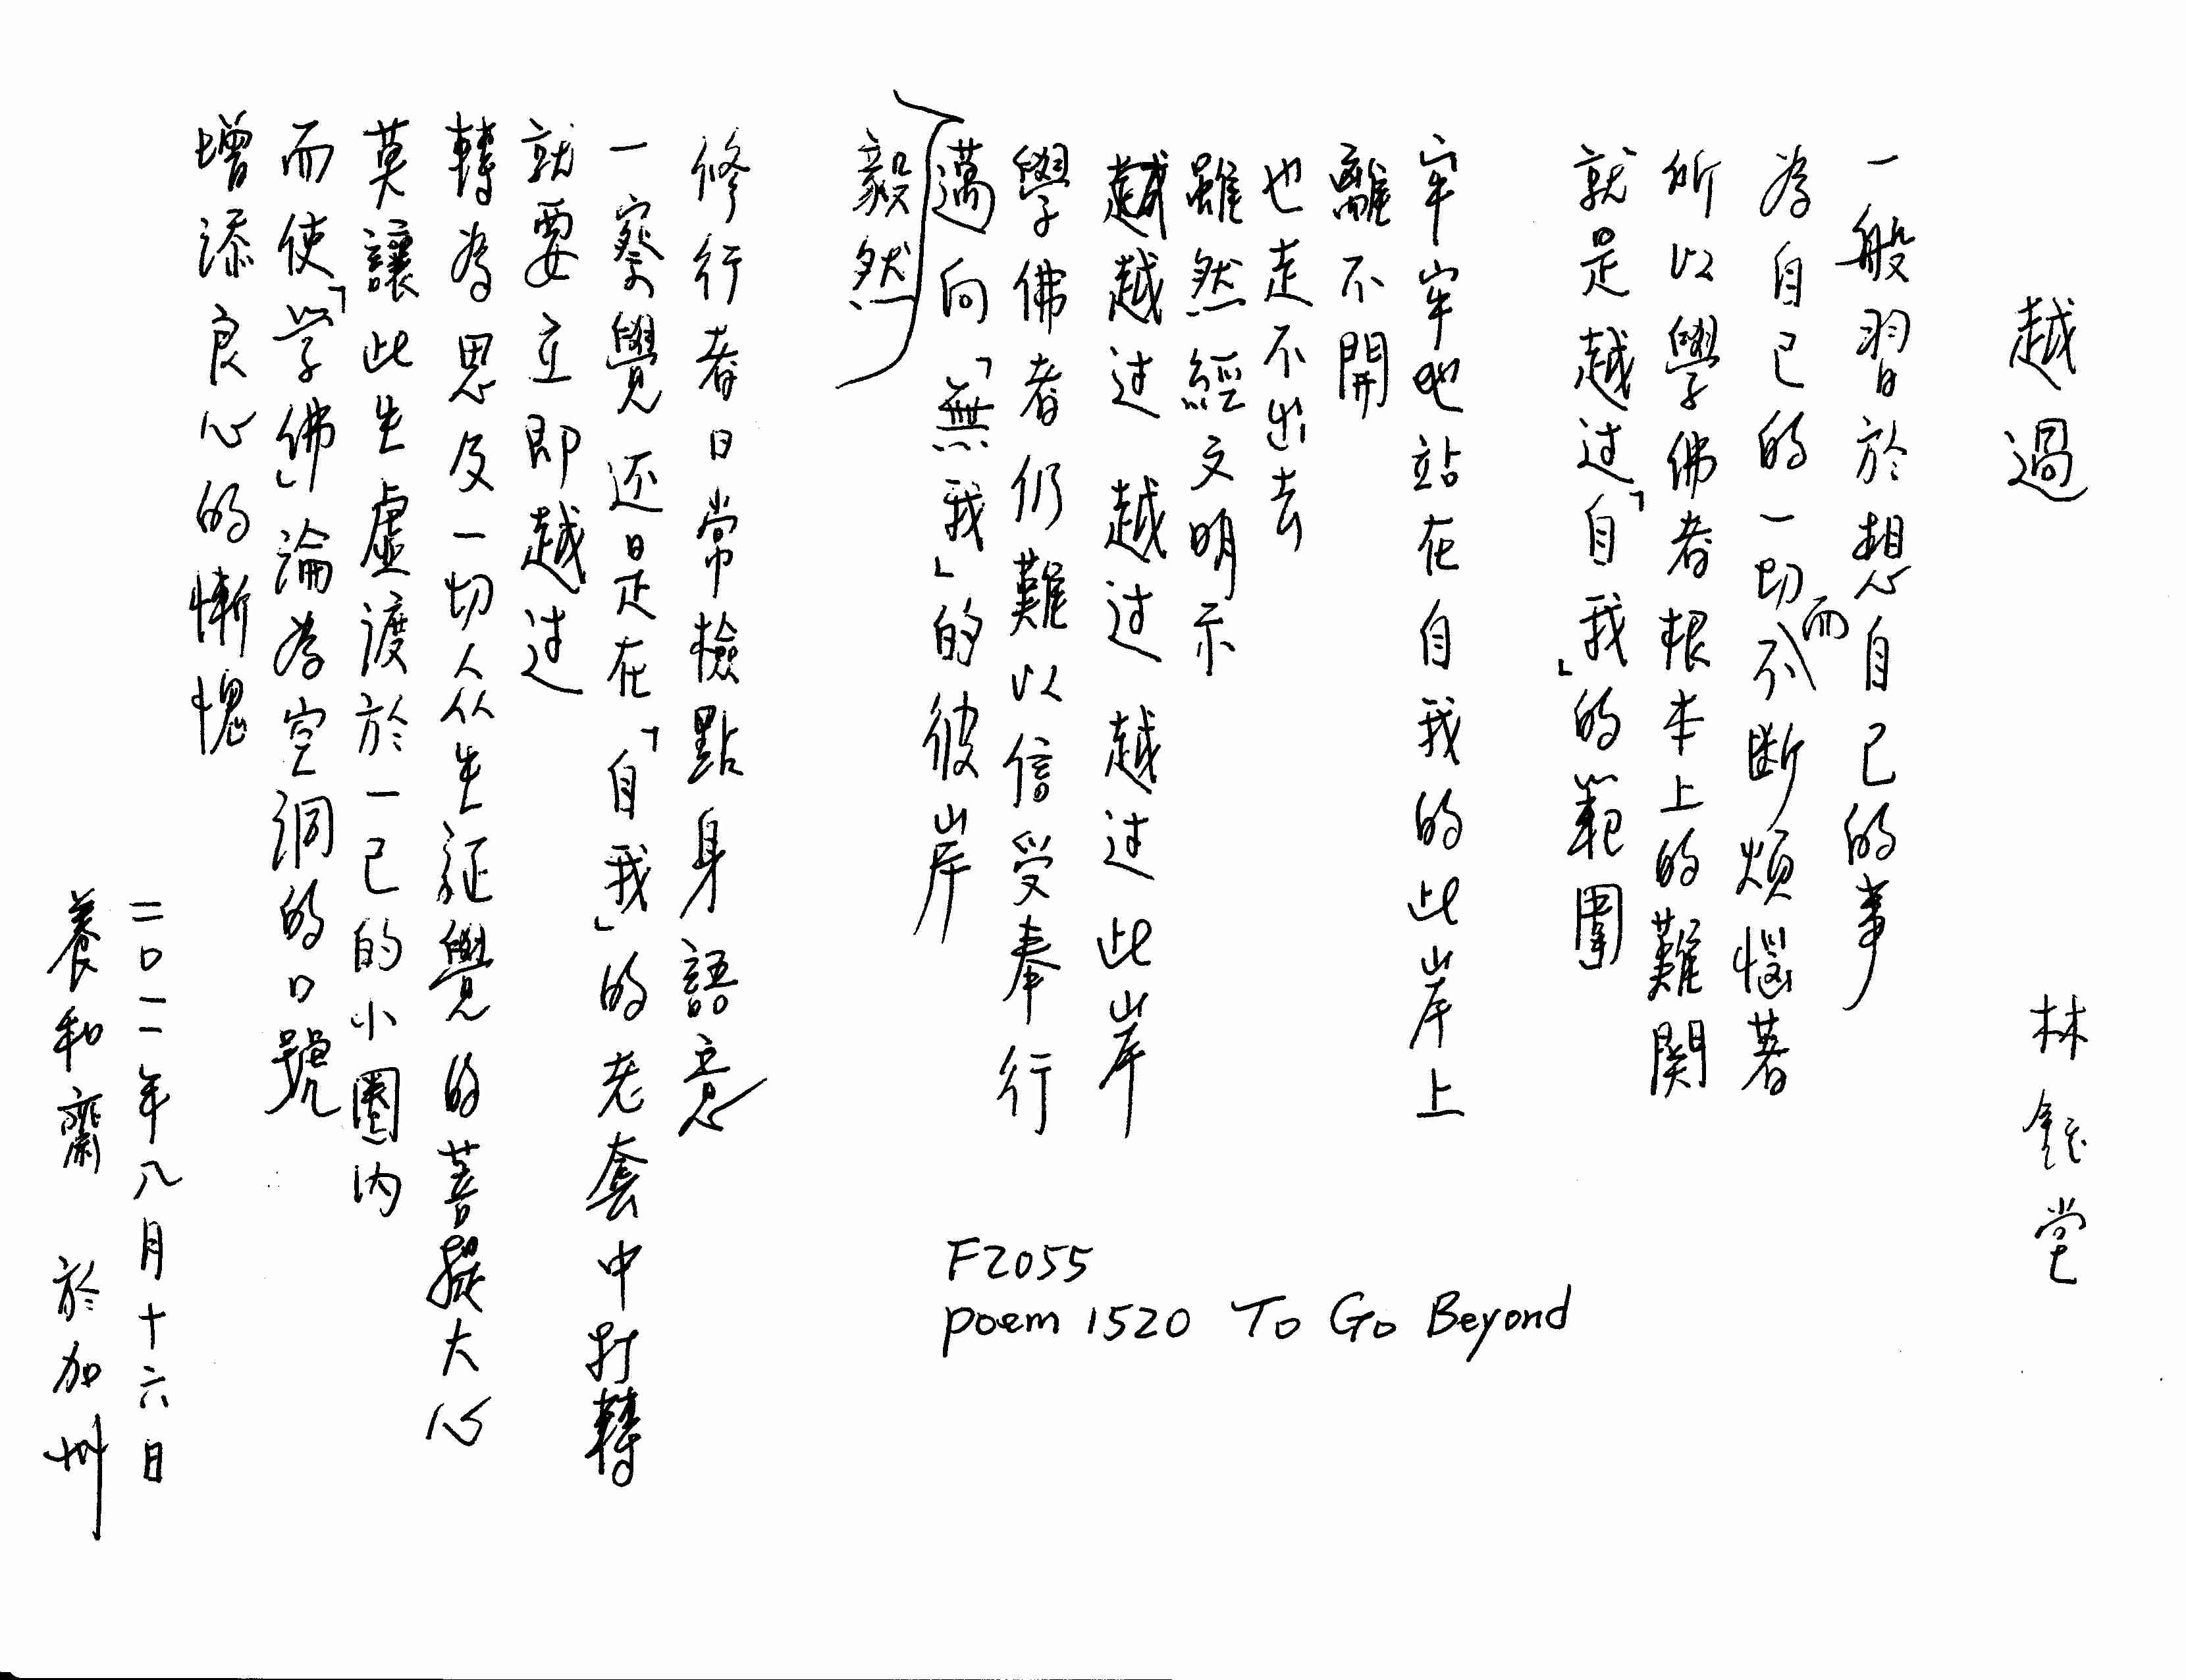 越過
林鈺堂
一般習於想自己的事
為自己的一切而不斷煩惱著
所以學佛者根本上的難関
就是越过「自我」的範圍
牢牢地站在自我的此岸上
離不開
也走不出去
雖然經文明示
越越过 越过 越过此岸
學佛者仍難以信受奉行
邁向「無我」的彼岸
毅然
修行者日常檢點身語意
一察覺还是在「自我」的老套中打轉
就要立即越过
轉為思及一切人众生証覺的菩提大心
莫讓此生虛渡於一己的小圈內
而使「学佛」論為空洞的口號
增添良心的慚愧
二〇一一年八月十六日
養和齋 於加州
F2055
poem 1520 To Go Beyond